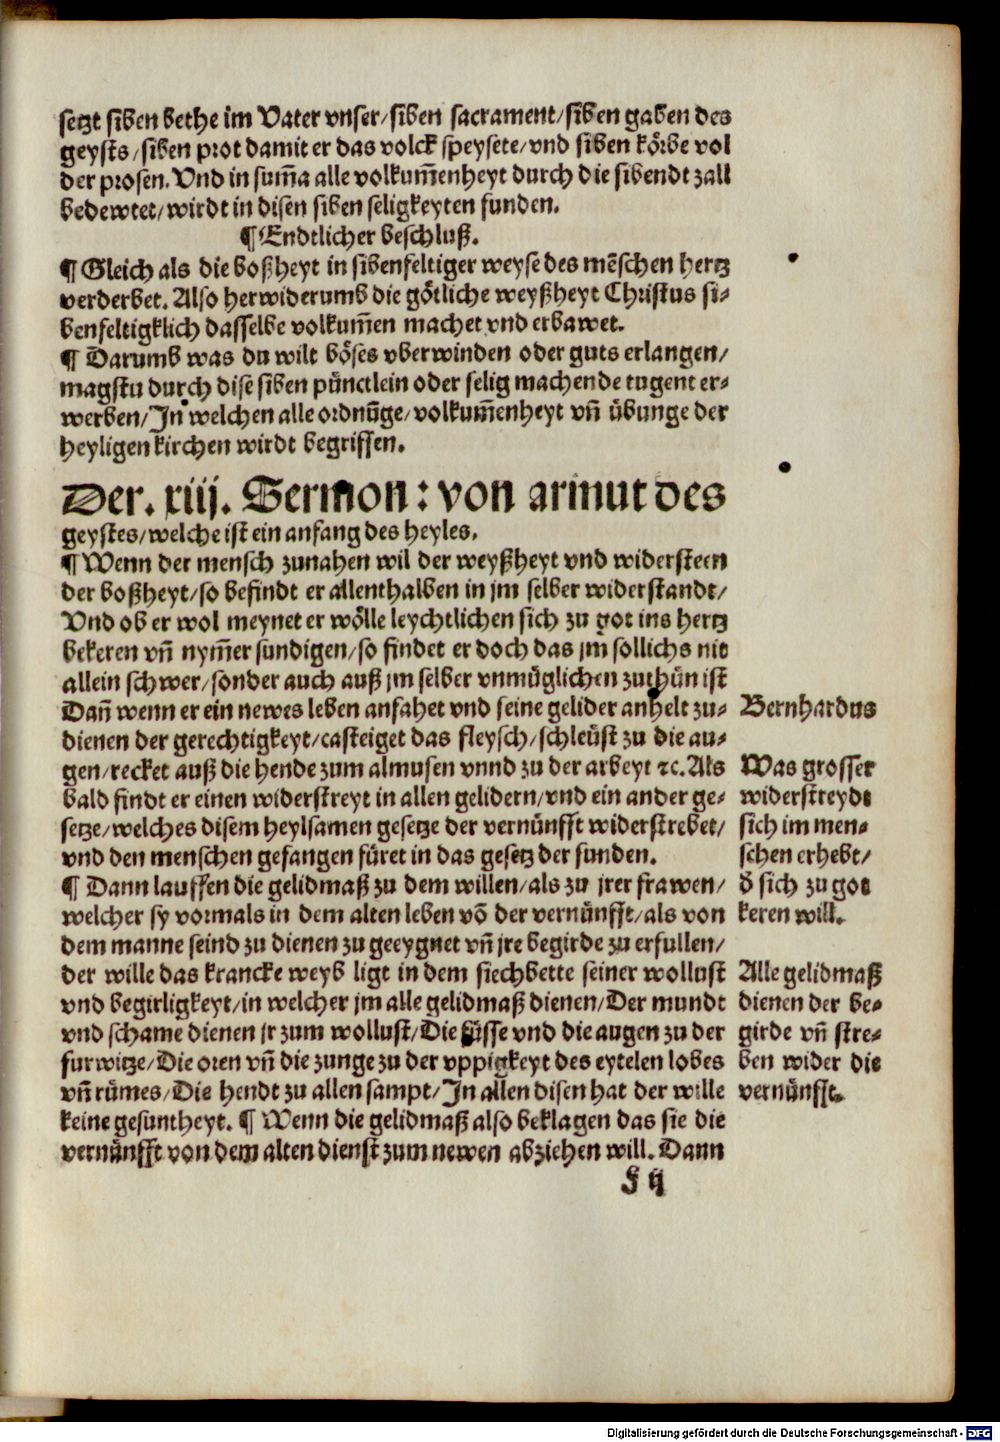 setzt siben bethe im Vater vnser/siben sacrament/siben gaben des
geysts/siben prot damit er das volck speysete/vnd siben körbe vol
der prosen. Vnd in sum̃a alle volkum̃enheyt durch die sibendt zall
bedewtet/wirdt in disen siben seligkeyten funden.
¶ Endtlicher beschluß.
¶ Gleich als die boßheyt in sibenfeltiger weyse des mẽschen hertz
verderbet. Also herwiderumb die götliche weyßheyt Christus si-
benfeltigklich dasselbe volkum̃en machet vnd erbawet.
¶ Darumb was du wilt böses vberwinden oder guts erlangen/
magstu durch dise siben pünctlein oder selig machende tugent er-
werben/In welchen alle ordnũge/volkum̃enheyt vñ übunge der
heyligen kirchen wirdt begriffen.
Der. xiij. Sermon: von armut des
geystes/welche ist ein anfang des heyles.
¶ Wenn der mensch zunahen wil der weyßheyt vnd widersteen
der boßheyt/so befindt er allenthalben in jm selber widerstandt/
Vnd ob er wol meynet er wölle leychtlichen sich zu got ins hertz
bekeren vñ nym̃er sundigen/so findet er doch das jm sollichs nit
allein schwer/sonder auch auß jm selber vnmüglichen zuthün ist
Dañ wenn er ein newes leben anfahet vnd seine gelider anhelt zu-
dienen der gerechtigkeyt/casteiget das fleysch/schleüst zu die au-
gen/recket auß die hende zum almusen vnnd zu der arbeyt ⁊c. Als
bald findt er einen widerstreyt in allen gelidern/vnd ein ander ge-
setze/welches disem heylsamen gesetze der vernünfft widerstrebet/
vnd den menschen gefangen füret in das gesetz der sunden.
¶ Dann lauffen die gelidmaß zu dem willen/als zu jrer frawen/
welcher sy vormals in dem alten leben võ der vernünfft/als von
dem manne seind zu dienen zu geeygnet vñ jre begirde zu erfullen/
der wille das krancke weyb ligt in dem siechbette seiner wollust
vnd begirligkeyt/in welcher jm alle gelidmaß dienen/Der mundt
vnd schame dienen jr zum wollust/Die füsse vnd die augen zu der
furwitze/Die oren vñ die zunge zu der vppigkeyt des eytelen lobes
vñ rümes/Die hendt zu allen sampt/In allen disen hat der wille
keine gesuntheyt. ¶ Wenn die gelidmaß also beklagen das sie die
vernünfft von dem alten dienst zum newen abziehen will. Dann
Bernhardus
Was grosser
widerstreydt
sich im men-
schen erhebt/
d̕ sich zu got
keren will.
Alle gelidmaß
dienen der be-
girde vñ stre-
ben wider die
vernünfft.
Digitalisierung gefördert durch die Deutsche Forschungsgemeinschaft - DFG